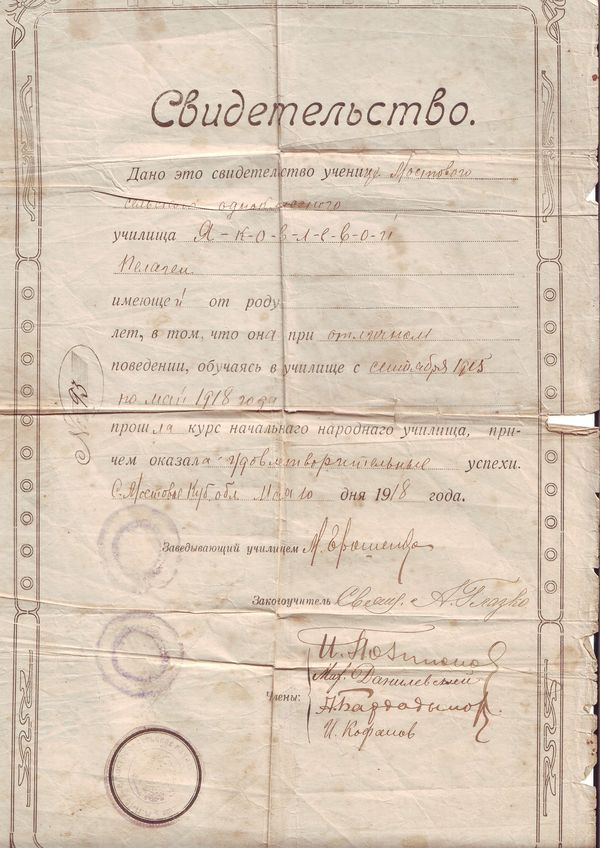 Свидетельство.
Дано это свидетельство учениц Мостового
сельского одноклассного
училища Я-к-о-в-л-е-в-о-й
Пелагеи
имеющей от роду
лет, в том, что она при отличном
поведении, обучаясь в училище с сентября 1915
по май 1918 года
прошла курс начальнаго народнаго училища, при-
чем оказала удовлетворительные успехи.
С. Мостовое Куб. обл. Мая 10 дня 1918 года.
Заведывающий училищем
Законоучитель Свящ. А. Глазко
Члены:
Мих. Данилевский
И. Кофанов